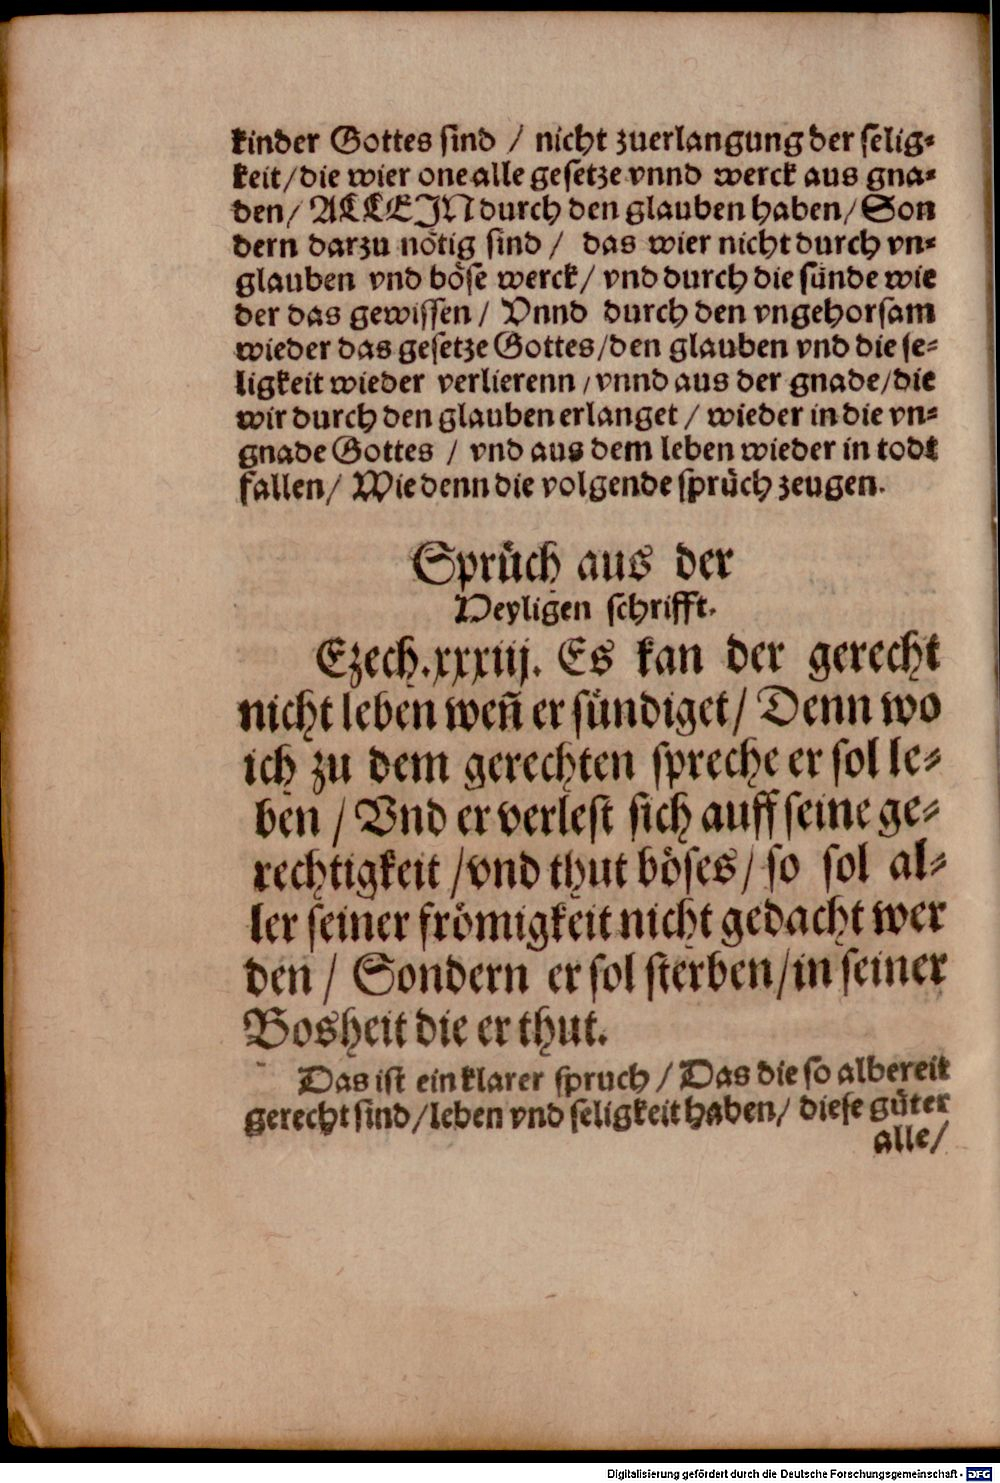 kinder Gottes sind / nicht zuerlangung der selig-
keit/die wier one alle gesetze vnnd werck aus gna-
den/ ALLEIN durch den glauben haben/ Son
dern darzu nötig sind / das wier nicht durch vn-
glauben vnd böse werck/ vnd durch die sünde wie
der das gewissen / Vnnd durch den vngehorsam
wieder das gesetze Gottes/den glauben vnd die se-
ligkeit wieder verlierenn /vnnd aus der gnade/die
wir durch den glauben erlanget / wieder in die vn-
gnade Gottes / vnd aus dem leben wieder in todt
fallen/ Wie denn die volgende sprüch zeugen.
Sprüch aus der
Heyligen schrifft.
Ezech.xxxiij. Es kan der gerecht
nicht leben weñ er sündiget/ Denn wo
ich zu dem gerechten spreche er sol le-
ben / Vnd er verlest sich auff seine ge-
rechtigkeit /vnd thut böses/ so sol al-
ler seiner frömigkeit nicht gedacht wer
den / Sondern er sol sterben/in seiner
Bosheit die er thut.
Das ist ein klarer spruch / Das die so albereit
gerecht sind/leben vnd seligkeit haben/ diese güter
alle/
Digitalisierung gefördert durch die Deutsche Forschungsgemeinschaft - DFG